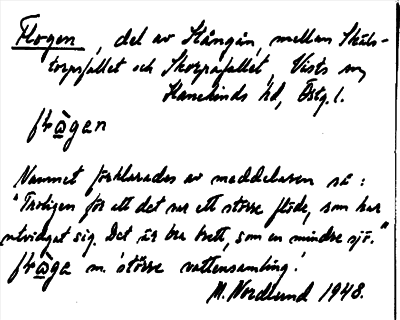 Flogen, del av Stångån, mellan Skåls-
torpsfallet och Skorpafallet, Vists sn
Hanekinds hd, Östg. l.
flø̀gen
Namnet förklarades av meddelaren så:
"Troligen för att det var ett större flöde, som har
utvidgat sig. Det är bra brett, som en mindre sjö."
fløga m. 'större vattensamling'.
M. Nordlund 1948.